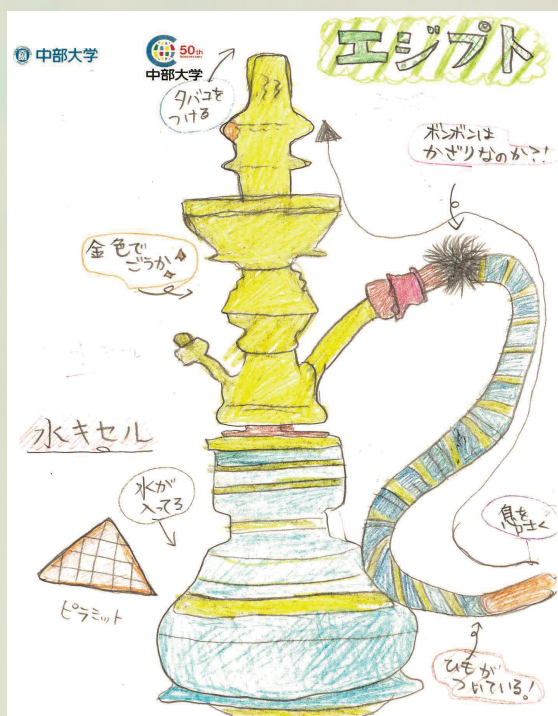 中部大学
50th
Anniversary
中部大学
エジプト
タバコを
つける
ボンボンは
かざりなのか?!
金色で
ごうか
水キセル
水が
入ってる
ピラミット
息を
ひもが
ついている!